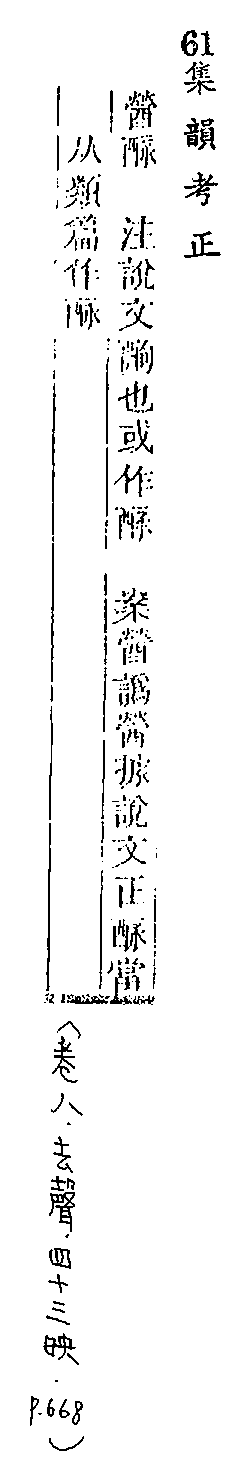 61集韻考正
醟醁 注說文酌也或作醁 案醟譌䁝據說文正醁當
从類篇作醁
(卷八.去聲.四十三映.p.668)